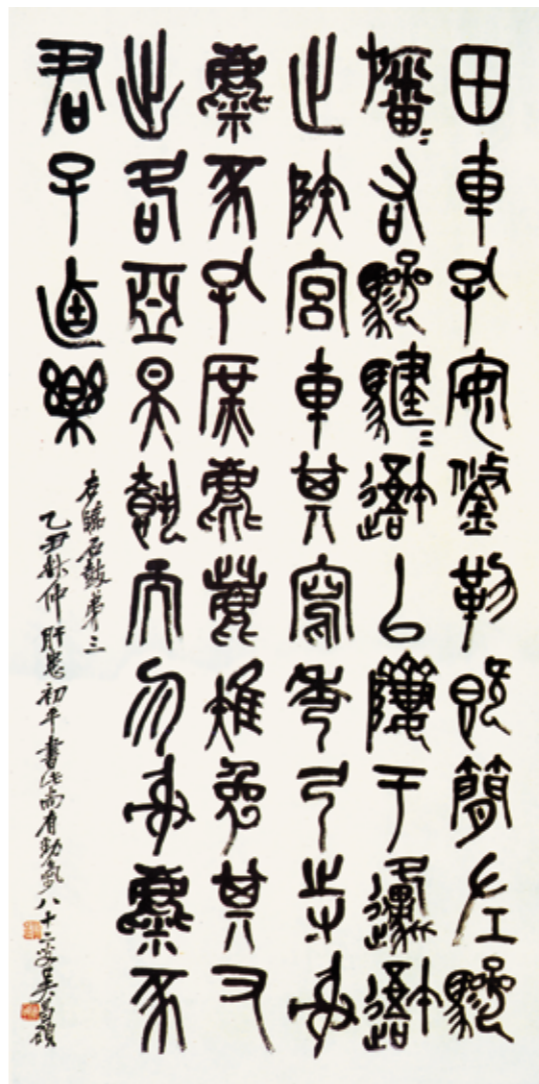 田車孔安鋚勒既簡左驂
旛〻右驂騝〻吾以隮于邍吾
止陕宮車其寫秀弓寺射
麋豕孔庶麀鹿雉兔其又
出各亞昊執而勿射麋豕
君子逌樂
右臨石鼓第三
乙丑秋仲肝恙初平書此尚有動氣八十二叟吳昌碩